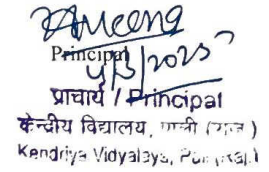 Principal
4/3/2025
प्राचार्य / Principal
केन्द्रीय विद्यालय, पाली (राज.)
Kendriya Vidyalaya, Pali (Raj.)